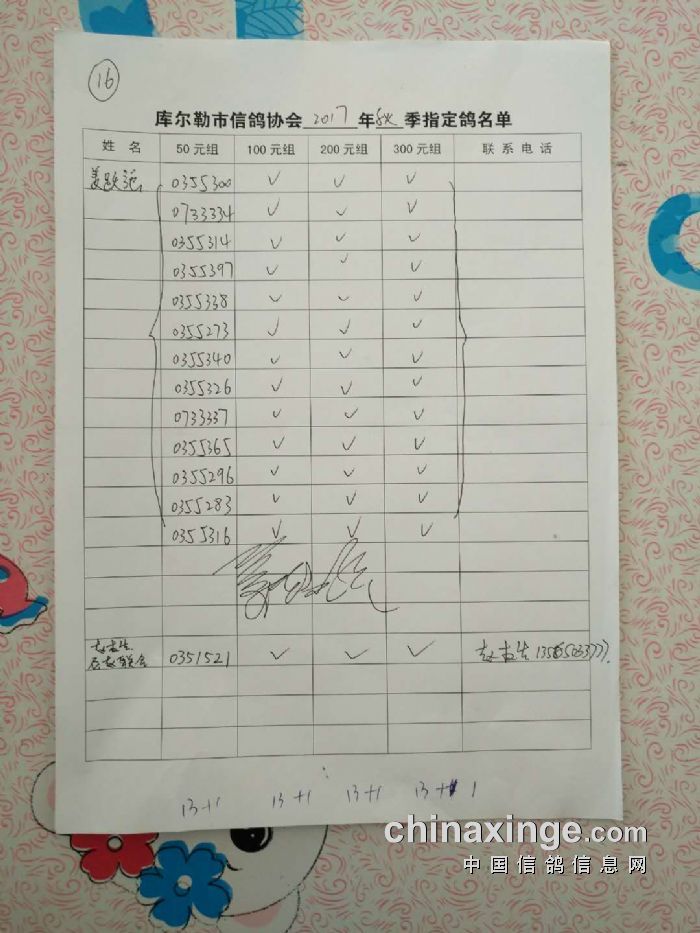 16
库尔勒市信鸽协会 2017 年 秋 季指定鸽名单
姓 名 50 元组 100 元组 200 元组 300 元组 联 系 电 话
0355300 ✓ ✓ ✓
0733334 ✓ ✓ ✓
0355314 ✓ ✓ ✓
0355397 ✓ ✓ ✓
0355338 ✓ ✓ ✓
0355273 ✓ ✓ ✓
0355340 ✓ ✓ ✓
0355326 ✓ ✓ ✓
0733337 ✓ ✓ ✓
0355365 ✓ ✓ ✓
0355296 ✓ ✓ ✓
0355283 ✓ ✓ ✓
0355316 ✓ ✓ ✓
0351521 ✓ ✓ ✓
13+1 13+1 13+1 13+1
chinaxinge.com
中国信鸽信息网